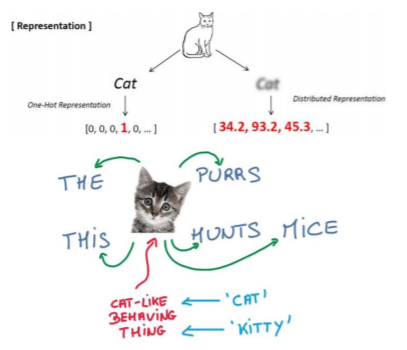 [ Representation ]
Cat
Cat
One-Hot Representation
Distributed Representation
[0, 0, 0, 1, 0, ... ]
[ 34.2, 93.2, 45.3, ... ]
THE
PURRS
THiS
HUNTS MiCE
CAT-LiKE
BEHAViNG
THiNG
'CAT'
'KiTTY'